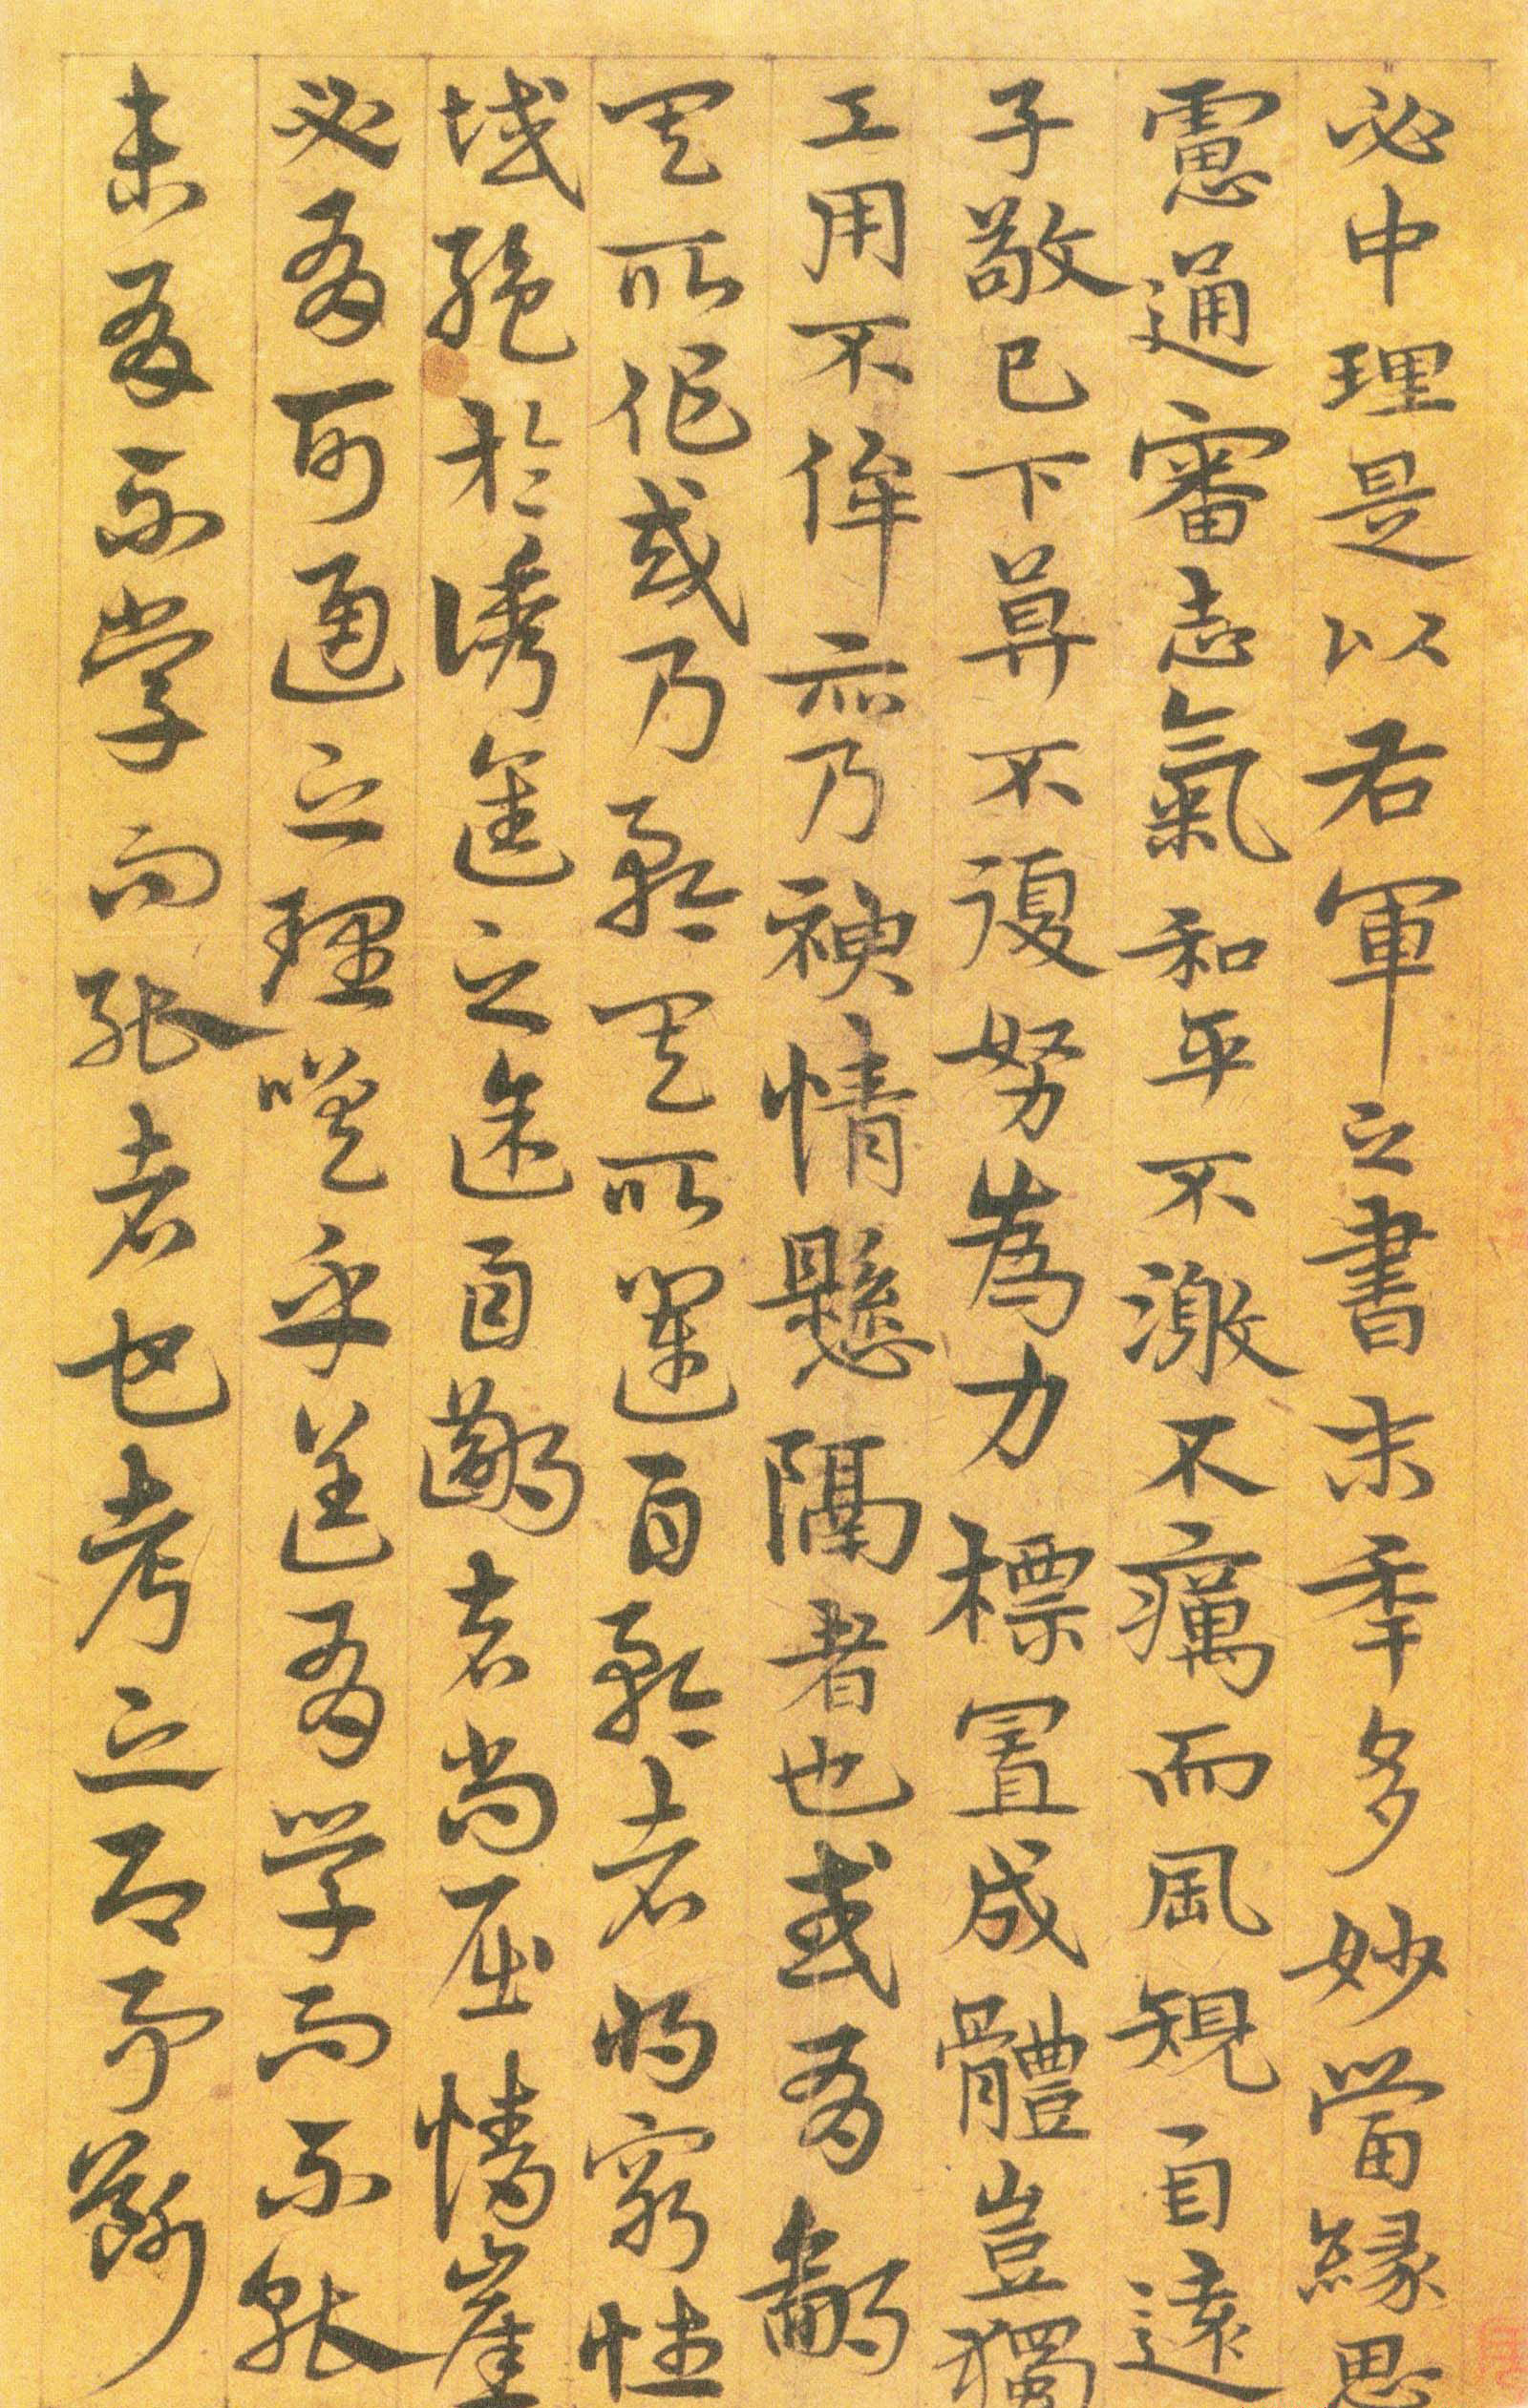 必中理是以右軍之書末年多妙當緣思
慮通審志氣和平不激不癘而風規自遠
子敬已下莫不皷努為力標置成體豈獨
工用不侔亦乃神情懸隔者也或有鄙
其所作或乃矜其所運自矜者將窮性
域絕於誘進之途自鄙者尚屈情涯
必有可通之理嗟乎蓋有學而不能
未有不學而能者也考之即事斷